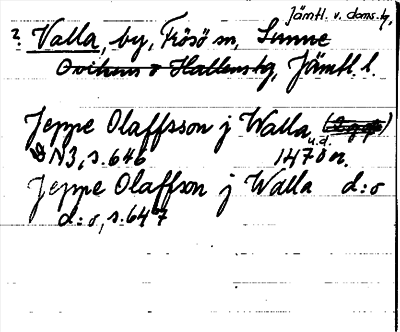 Jämtl. v. doms.g,
? Valla, by, Frösö sn, Sunne
Ovikens o Hallens tg, Jämtl. l.
Jeppe Olaffsson j Walla
u.d.
DN3, s. 646 1478 n.
Jeppe Olaffson j Walla d:o
d:o, s. 647